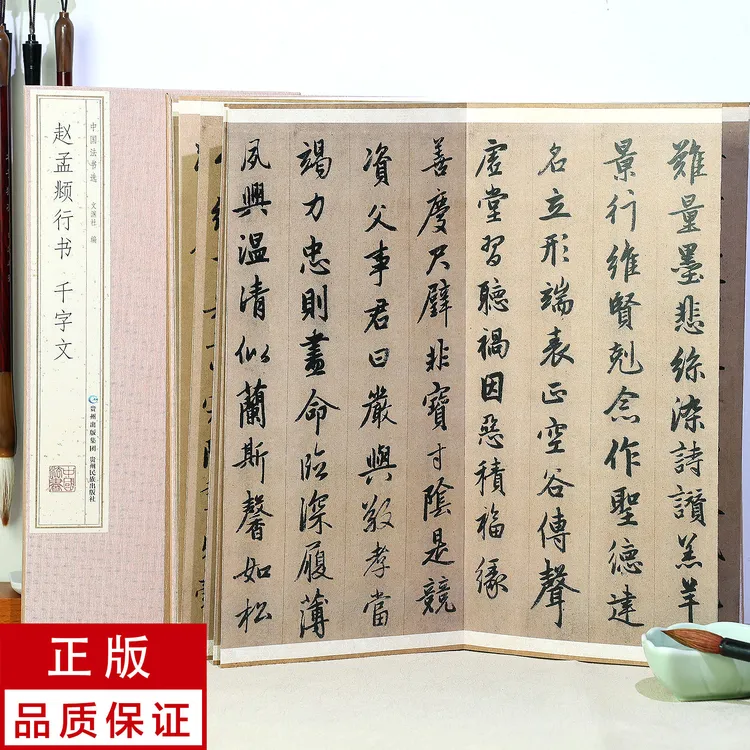 中国法书选
赵孟頫行书 千字文
贵州出版集团
贵州民族出版社
難量墨悲絲染詩讚羔羊
景行維賢剋念作聖德建
名立形端表正空谷傳聲
虛堂習聽禍因惡積福緣
善慶尺璧非寶寸陰是競
資父事君曰嚴與敬孝當
竭力忠則盡命臨深履薄
夙興温清似蘭斯馨如松
正版
品质保证